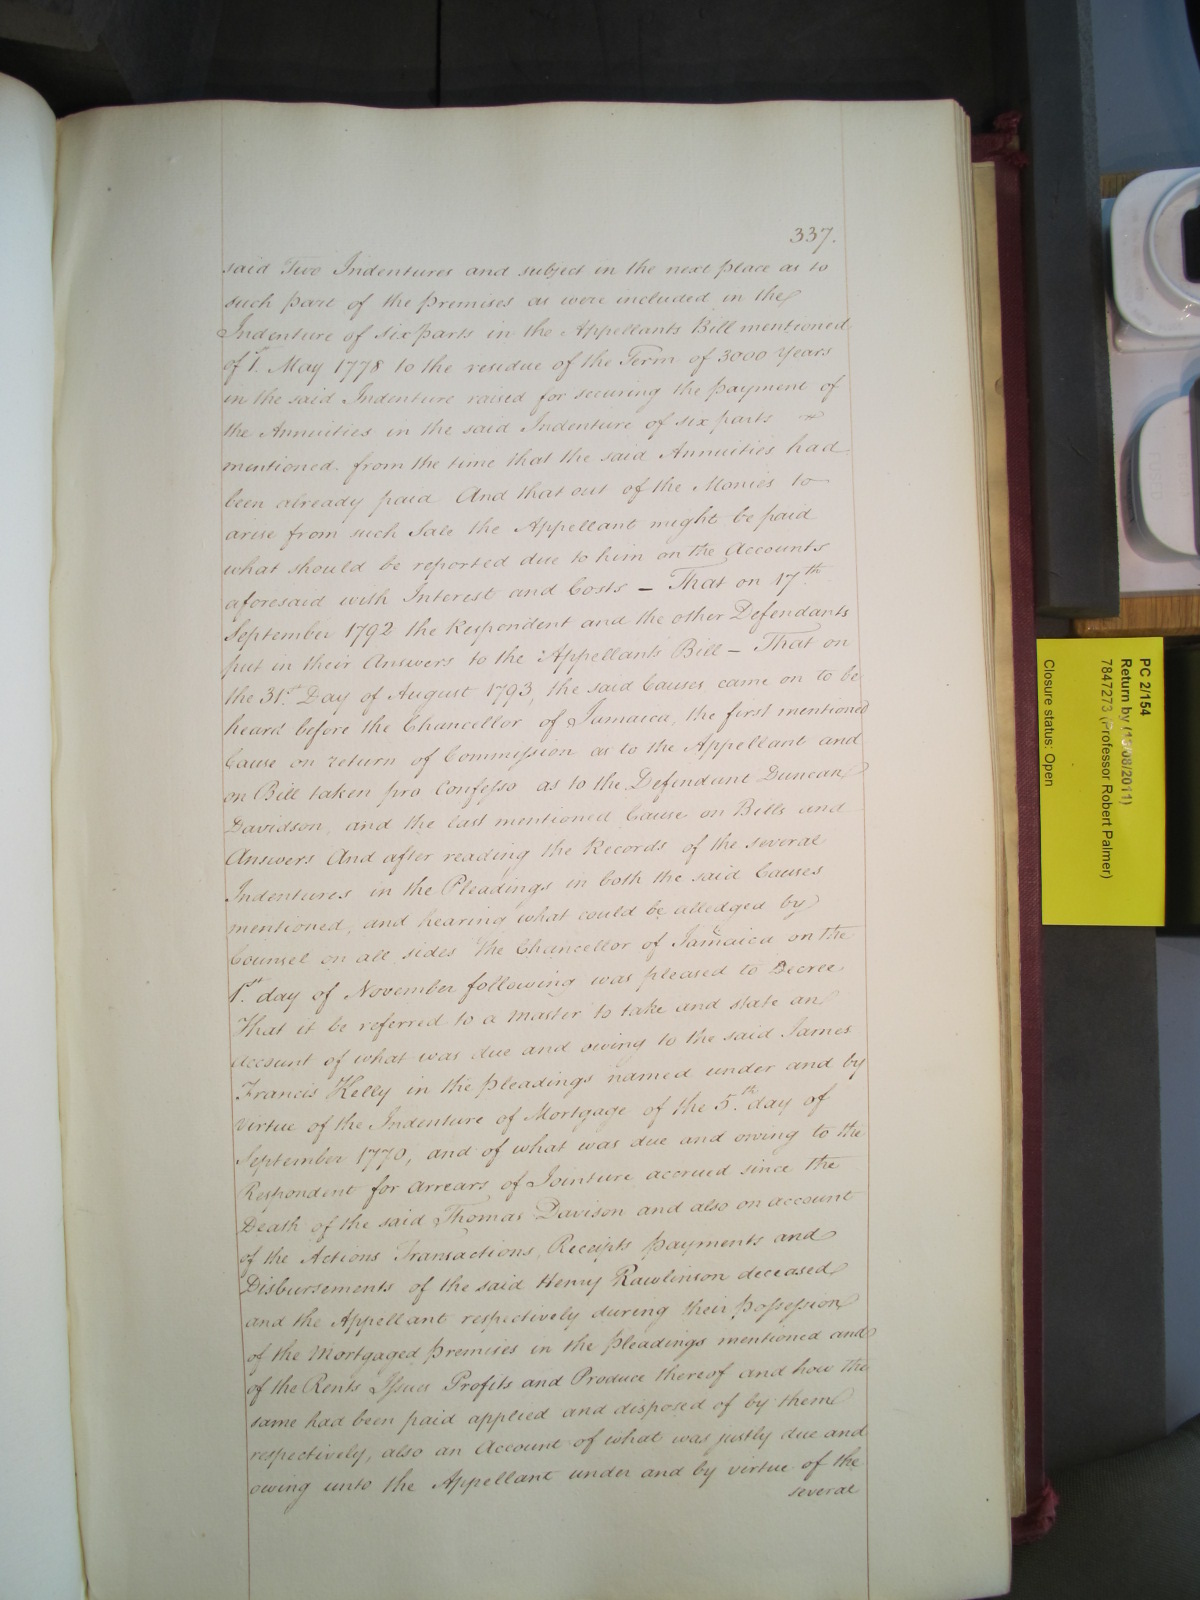 337.
said Two Indentures and subject in the next place as to
such part of the premises as were included in the
Indenture of six parts in the Appellants Bill mentioned
of 1st. May 1778 to the residue of the Term of 3000 Years
in the said Indenture raised for securing the payment of
the Annuities in the said Indenture of six parts
mentioned from the time that the said Annuities had
been already paid And that out of the Monies to
arise from such Sale the Appellant might be paid
what should be reported due to him on the Accounts
aforesaid with Interest and Costs – That on 17th.
September 1792 the Respondent and the other Defendants
put in their Answers to the Appellants Bill – That on
the 31st. Day of August 1793, the said Causes came on to be
heard before the Chancellor of Jamaica, the first mentioned
Cause on return of Commission as to the Appellant and
on Bill taken pro Confesso as to the Defendant Duncan
Davidson, and the last mentioned Cause on Bills and
Answers And after reading the Records of the several
Indentures in the Pleadings in both the said Causes
mentioned, and hearing what could be alledged by
Counsel on all sides the Chancellor of Jamaica on the
1st. day of November following was pleased to Decree
That it be referred to a Master to take and state an
Account of what was due and owing to the said James
Francis Kelly in the pleadings named under and by
virtue of the Indenture of Mortgage of the 5th. day of
September 1770, and of what was due and owing to the
Respondent for arrears of Jointure accrued since the
Death of the said Thomas Davison and also on account
of the Actions Transactions, Receipts payments and
Disbursements of the said Henry Rawlinson deceased
and the Appellant respectively during their possession
of the Mortgaged premises in the pleadings mentioned and
of the Rents Issues Profits and Produce thereof and how the
same had been paid applied and disposed of by them
respectively, also an Account of what was justly due and
owing unto the Appellant under and by virtue of the
several
PC 2/154
Return by (15/08/2011)
7847273 (Professor Robert Palmer)
Closure status: Open